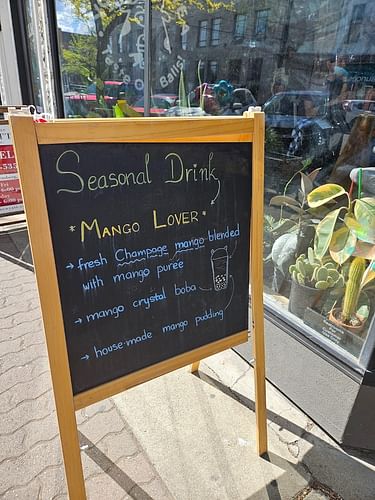 Seasonal Drink
* MANGO LOVER *
→ fresh Champage mango-blended
with mango purée
→ mango crystal boba
→ house-made mango pudding